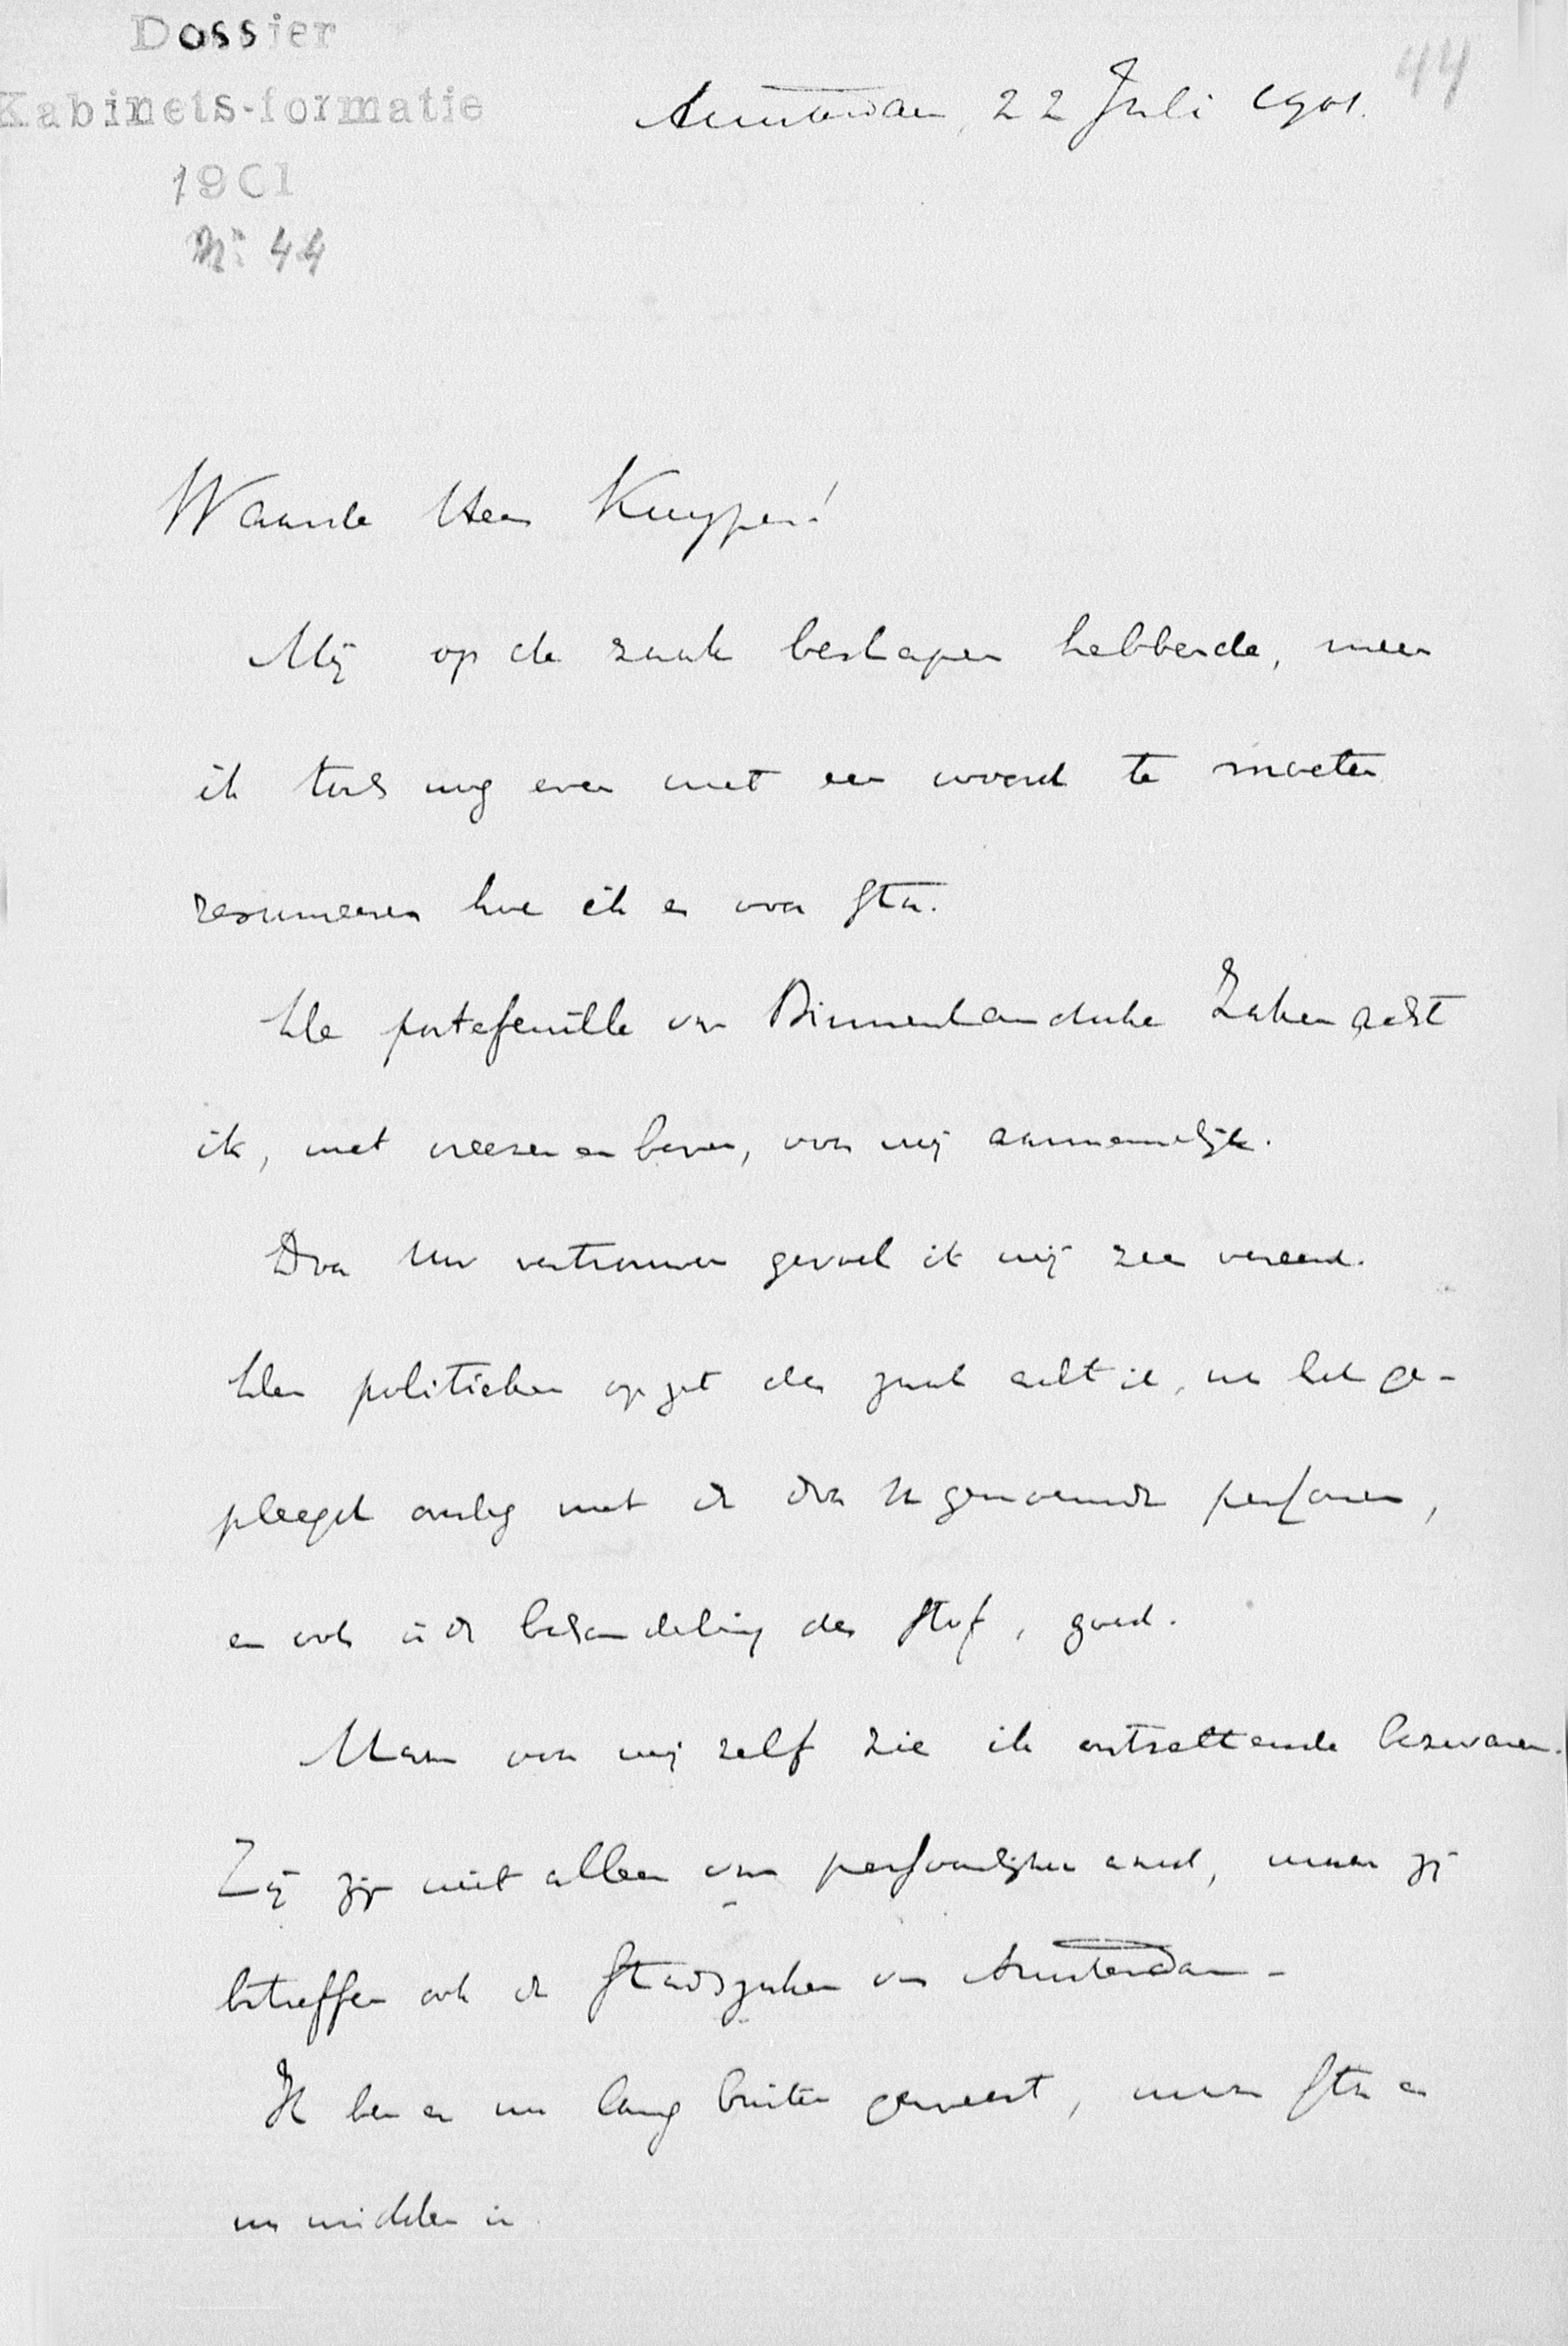 Dossier
44
Kabinets-formatie
Amsterdam, 22 Juli 1901.
1901
No 44
Waarde Heer Kuyper!
Mij op de zaak beslapen hebbende, meen
ik toch nog even met een woord te moeten
resumeeren hoe ik er voor sta.
De portefeuille van Binnenlandsche Zaken acht
ik, met vreezen en beven, voor mij aannemelijk.
Door Uw vertrouwen gevoel ik mij zeer vereerd.
Den politieken opzet der zaak acht ik, na het ge-
pleegd overleg met de door U genoemde personen,
en ook in de behandeling der stof, goed.
Maar voor mij zelf zie ik ontzettende bezwaren.
Zij zijn niet alleen van persoonlijken aard, maar zij
betreffen ook de Stadszaken van Amsterdam -
Ik ben er nu lang buiten geweest, maar sta er
nu midden in.